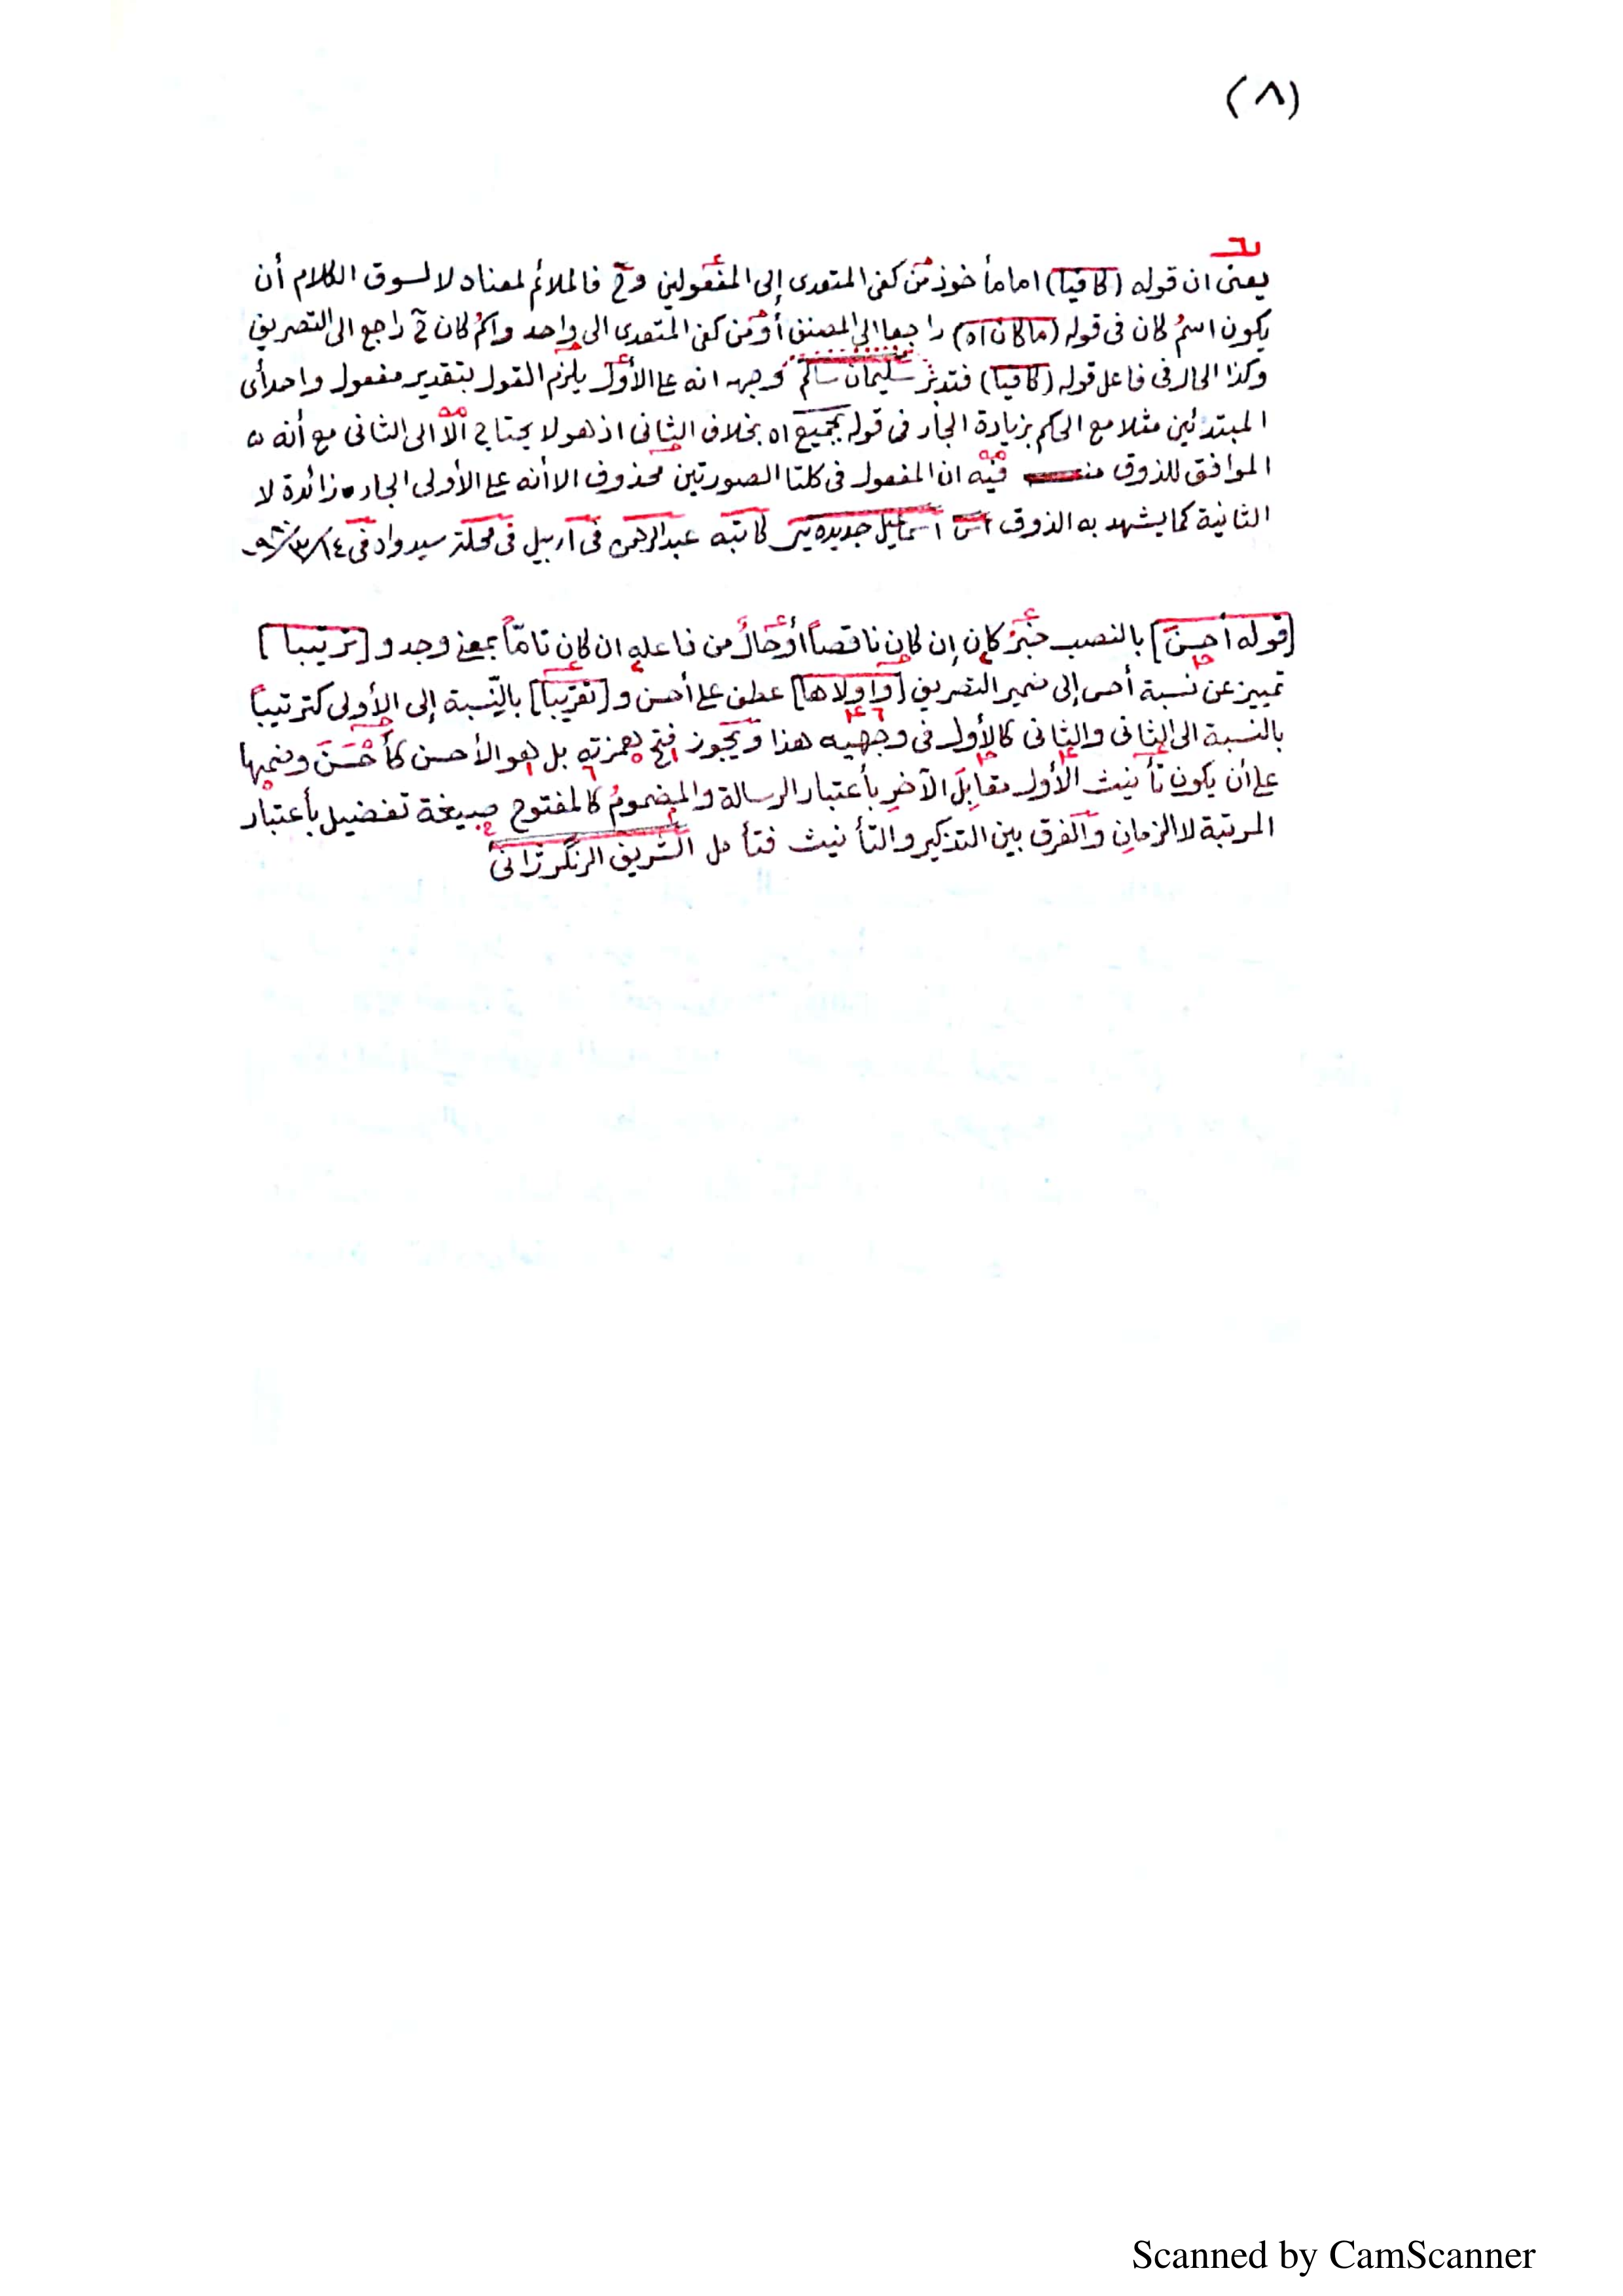 (٨)
يعنى ان قوله (كافيا) اما مأخوذ من كفى المتعدى إلى المفعولين وح فالملائم لمعناه لا لسوق الكلام أن
يكون اسم كان فى قوله (ما كان اه) راجعا الى المصنف أو من كفى المتعدى الى واحد واسم كان ح راجع الى التصريف
وكذا الحال فى فاعل قوله (كافيا) فتدبر سليمان سالم وجهه انه ع الأول يلزم القول بتقدير مفعول واحد أى
المبتدئين مثلا مع الحكم بزيادة الجار فى قوله بجميع اه بخلاف الثانى اذ هو لا يحتاج الا الى الثانى مع أنه
الموافق للذوق منه فيه ان المفعول فى كلتا الصورتين محذوف الا أنه ع الأولى الجاره زائدة لا
الثانية كما يشهد به الذوق اسماعيل جديده يى كاتبه عبدالرحمن فى اربيل فى محلة سيداوه فى ١٤/٣/
[قوله أحسن] بالنصب خبر كان إن كان ناقصاً أو حال من فاعله ان كان تامّاً بمعنى وجد و [ترتيبا]
تمييز عن نسبة أحسن إلى ضمير التصريف [واولاها] عطف على أحسن و [تقريبا] بالنّسبة إلى الأولى كترتيباً
بالنسبة الى الثانى والثانى كالأول فى وجهيه هذا ويجوز فتح همزته بل هو الأحسن كأحْسَنَ وضمها
على أن يكون تأنيث الأول مقابل الآخر بأعتبار الرسالة والمضموم كالمفتوح صيغة تفضيل بأعتبار
المرتبة لا الزمان والفرق بين التذكير والتأنيث فتأمل الشريف الزنگرژانى
Scanned by CamScanner